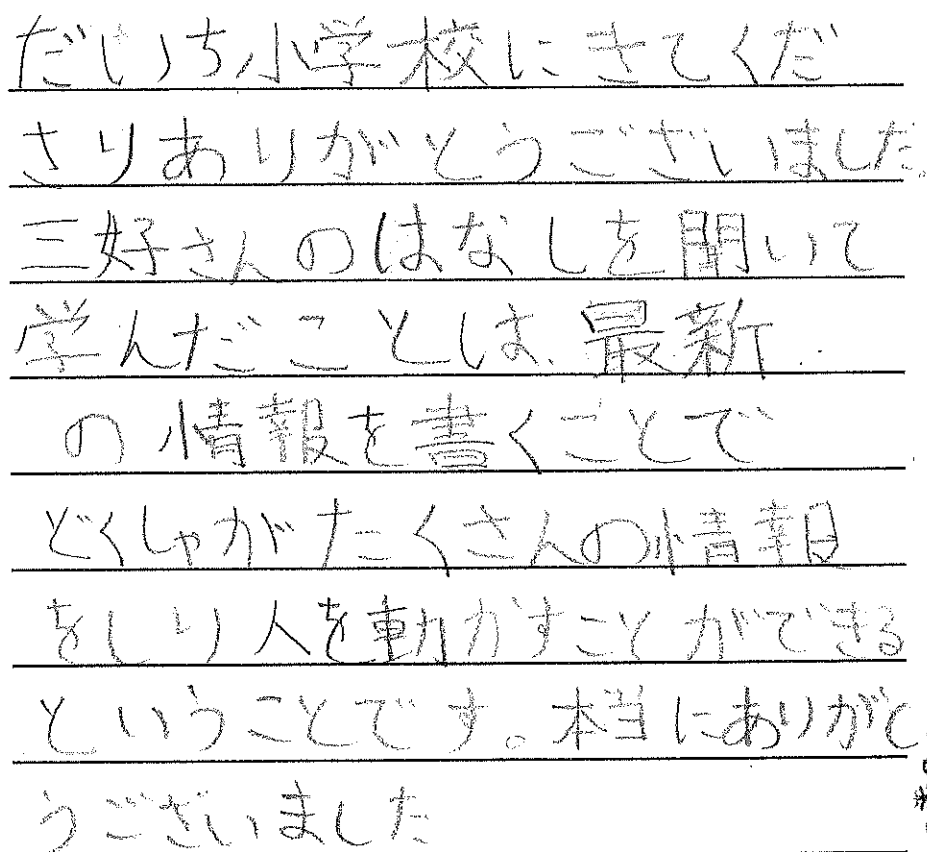 だいいち小学校にきてくだ
さりありがとうございました。
三好さんのはなしを聞いて
学んだことは、最新
の情報を書くことで
どくしゃがたくさんの情報
をしり人を動かすことができる
ということです。本当にありがと
うございました